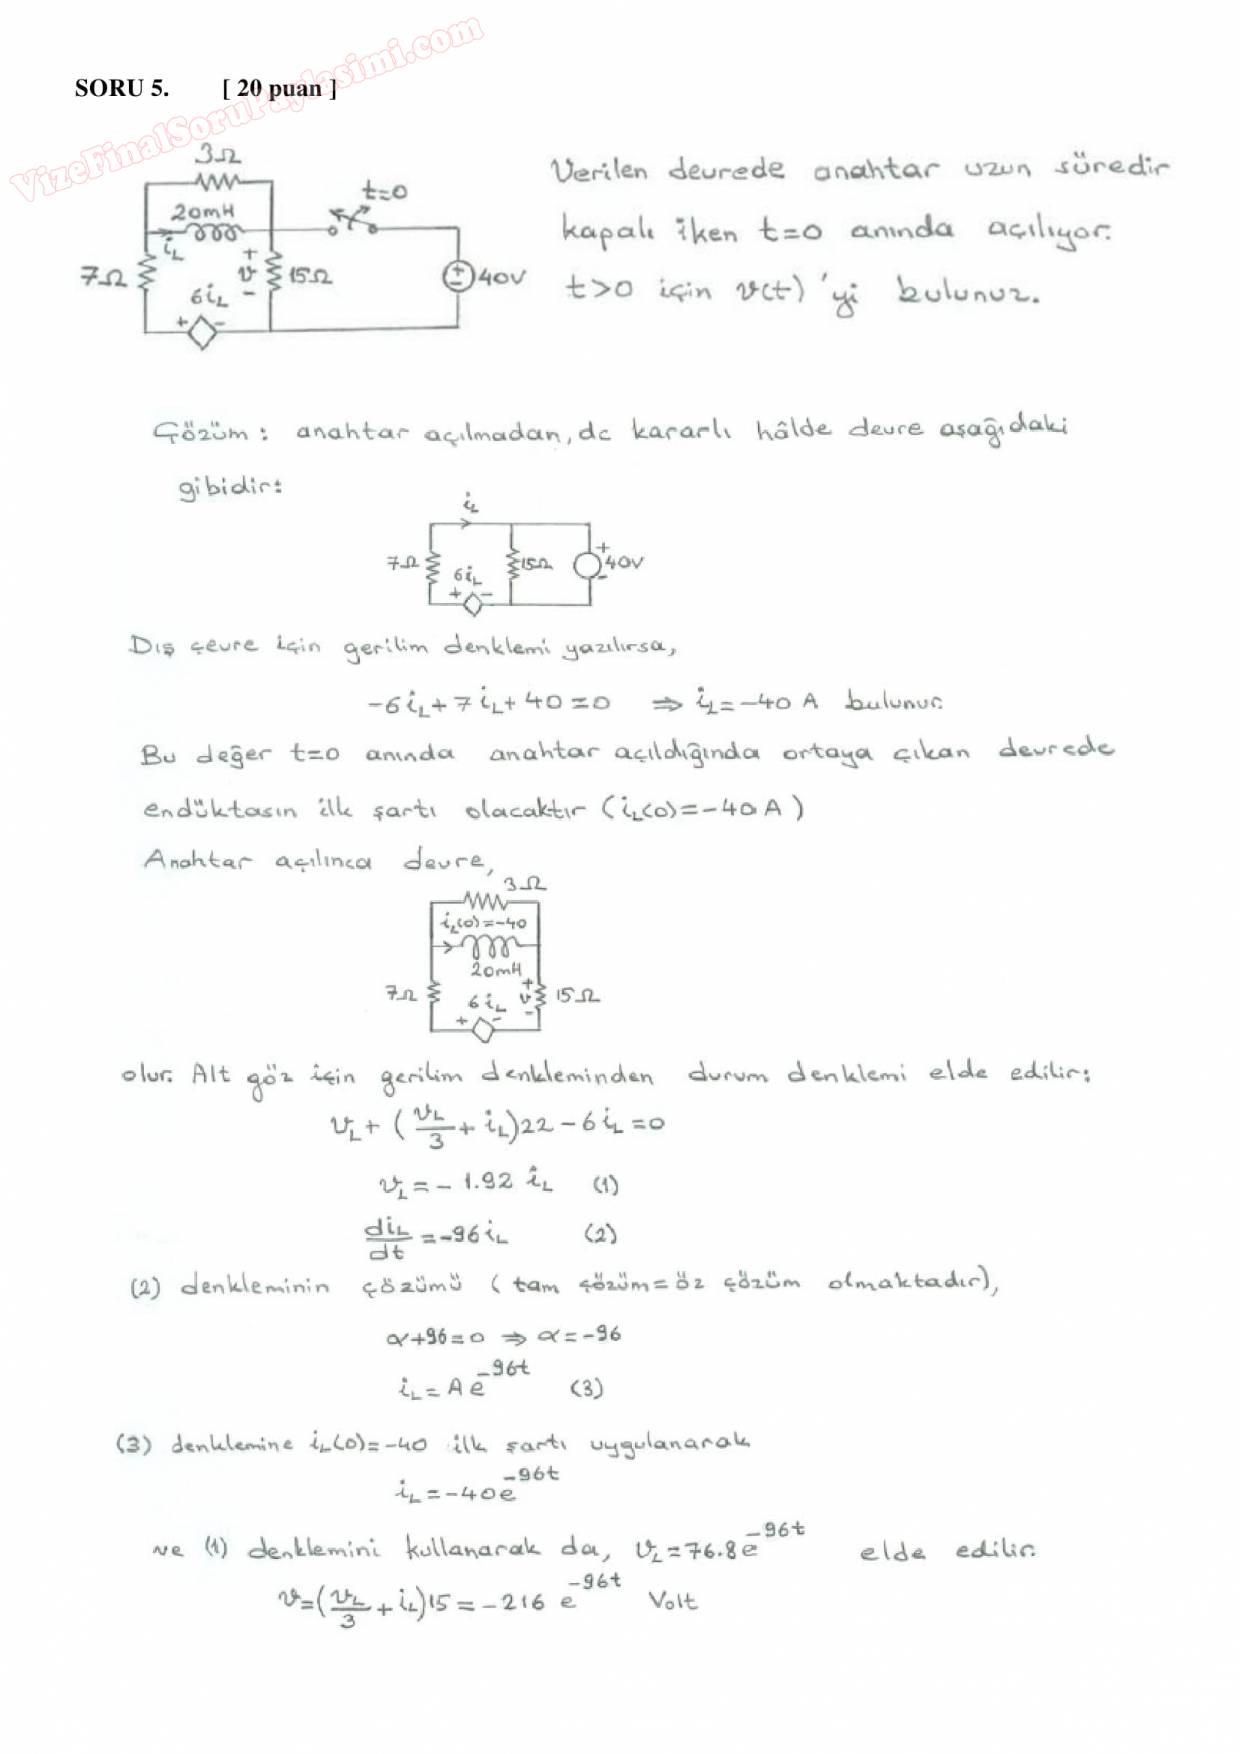 VizeFinalSoruPaylasimi.com
SORU 5. [ 20 puan ]
3Ω
20mH
iL
7Ω
+
v
-
15Ω
6iL
+ -
t=0
+
-
40V
Verilen devrede anahtar uzun süredir
kapalı iken t=0 anında açılıyor.
t>0 için v(t)'yi bulunuz.
Çözüm: anahtar açılmadan, dc kararlı hâlde devre aşağıdaki
gibidir:
iL
7Ω
6iL
+ -
15Ω
+
-
40V
Dış çevre için gerilim denklemi yazılırsa,
-6iL+7iL+40=0 ⇒ iL=-40 A bulunur.
Bu değer t=0 anında anahtar açıldığında ortaya çıkan devrede
endüktasın ilk şartı olacaktır (iL(0)=-40A)
Anahtar açılınca devre,
3Ω
iL(0)=-40
20mH
7Ω
6iL
+ -
+
v
-
15Ω
olur. Alt göz için gerilim denkleminden durum denklemi elde edilir:
vL+(vL/3+iL)22-6iL=0
vL=-1.92 iL (1)
diL/dt=-96iL (2)
(2) denkleminin çözümü (tam çözüm=öz çözüm olmaktadır),
α+96=0 ⇒ α=-96
iL=Ae^-96t (3)
(3) denklemine iL(0)=-40 ilk şartı uygulanarak
iL=-40e^-96t
ve (1) denklemini kullanarak da, vL=76.8e^-96t elde edilir.
v=(vL/3+iL)15=-216 e^-96t Volt